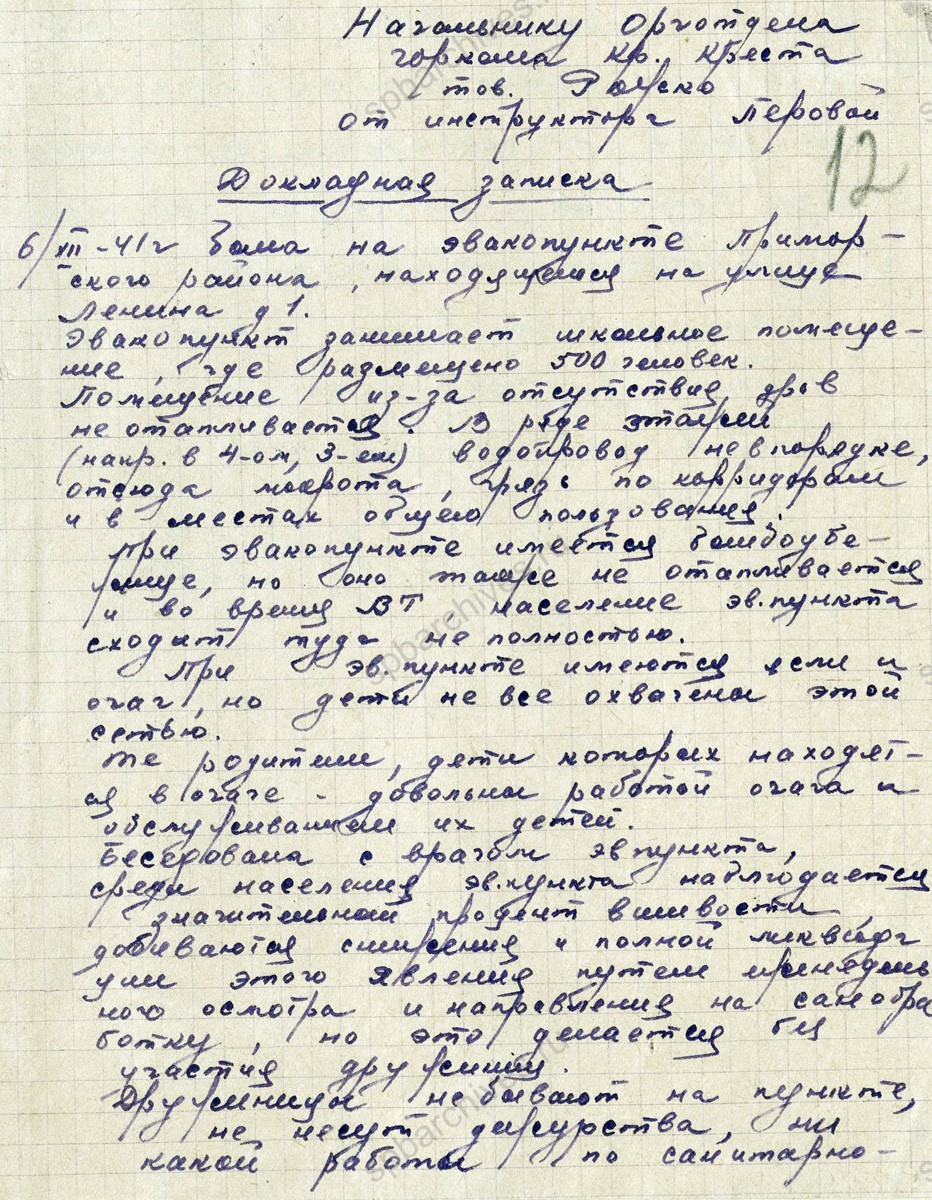 Начальнику Орготдела
горкома Кр. Креста
тов. 
от инструктора Перовой
12
Докладная записка
6/XII-41г была на эвакопункте Примор-
ского района, находящемся на улице
Ленина д 1.
Эвакопункт занимает школьное помеще-
ние, где размещено 500 человек.
Помещение из-за отсутствия дров
не отапливается. В ряде этажей
(напр. в 4-ом, 3-ем) водопровод не в порядке,
отсюда мокрота, грязь по корридорам
и в местах общего пользования.
При эвакопункте имеется бомбоубе-
жище, но оно также не отапливается
и во время ВТ население эв.пункта
сходит туда не полностью.
При эв.пункте имеются ясли и
очаг, но дети не все охвачены этой
сетью.
Те родители, дети которых находят-
ся в очаге - довольны работой очага и
обслуживанием их детей.
Беседовала с врачом эвпункта,
среди населения эв.пункта наблюдается
значительный процент вшивости,
добиваются снижения и полной ликвида
ции этого явления путем ежеднев
ного осмотра и направления на санобра
ботку, но это делается без
участия дружинниц.
Дружинницы не бывают на пункте,
не несут дежурства, ни
какой работы по санитарно-